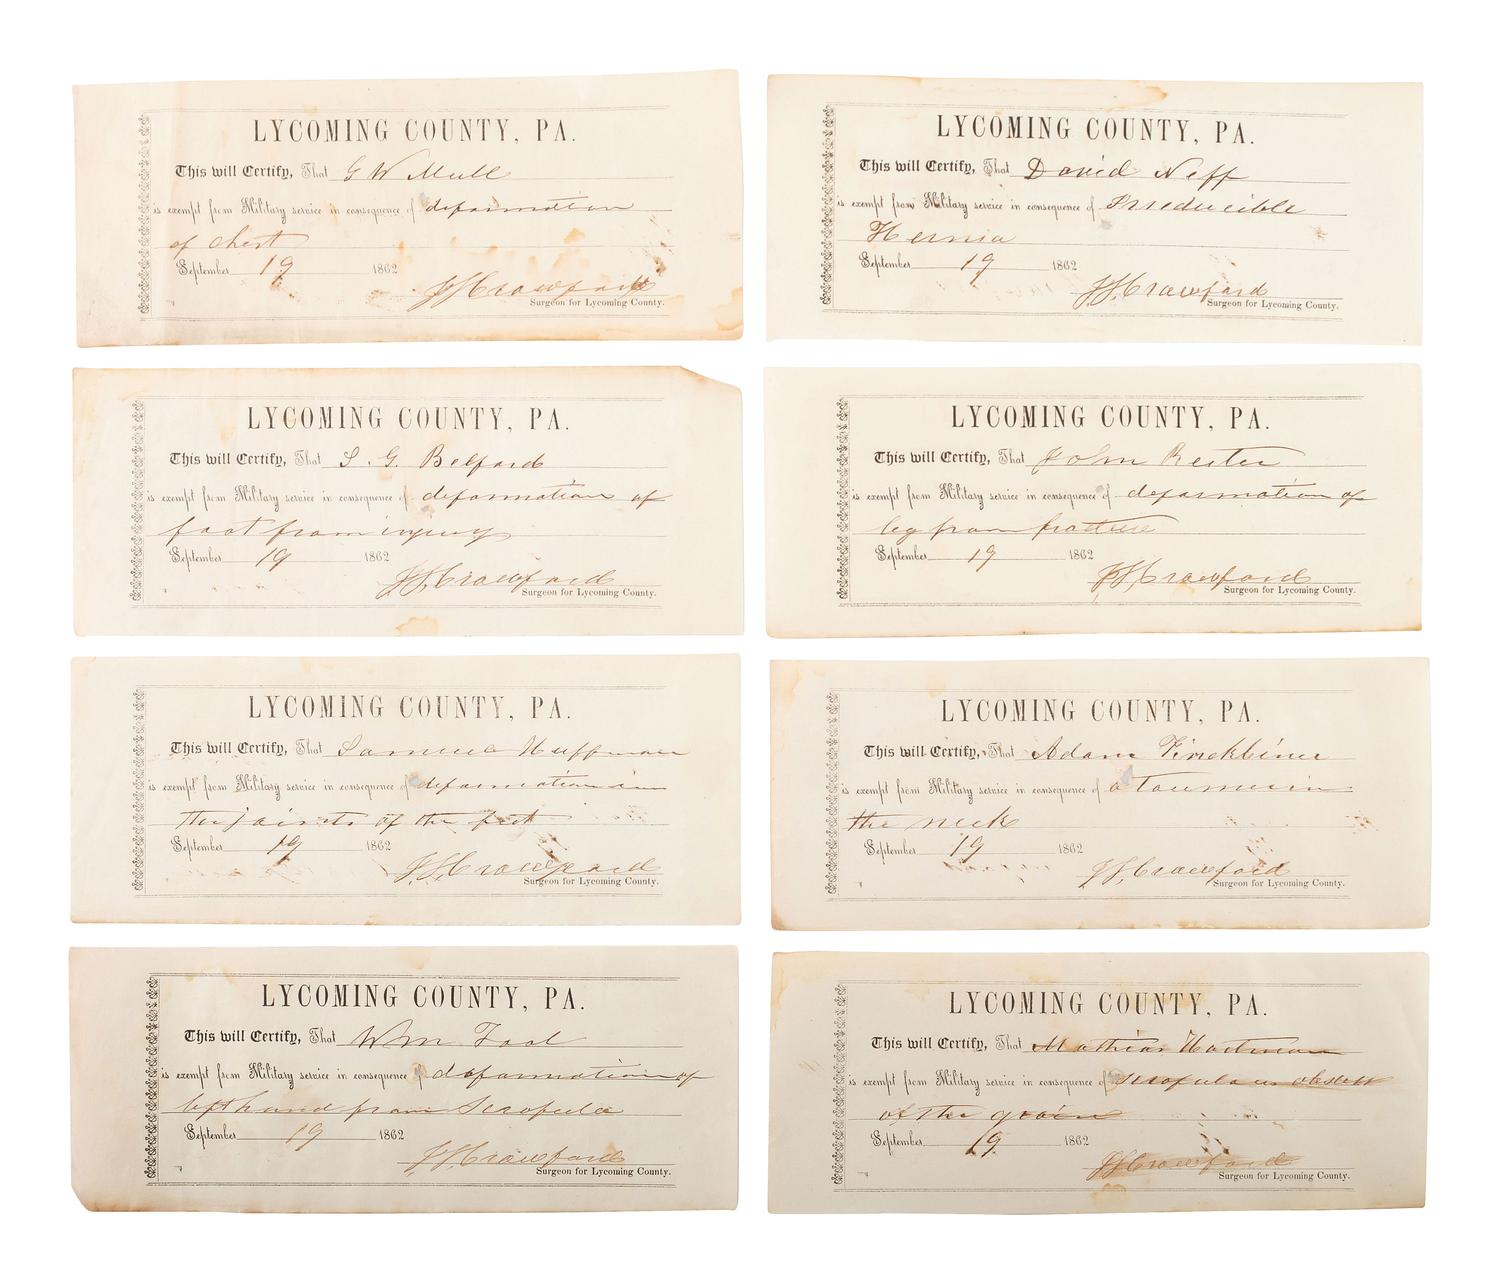 LYCOMING COUNTY, PA.
This will Certify, That G W Mull
is exempt from Military service in consequence of deformation
of chest
September 19 1862
J S Crawford
Surgeon for Lycoming County.
LYCOMING COUNTY, PA.
This will Certify, That David Neff
is exempt from Military service in consequence of Irreducible
Hernia
September 19 1862
J S Crawford
Surgeon for Lycoming County.
LYCOMING COUNTY, PA.
This will Certify, That S. G. Belford
is exempt from Military service in consequence of deformation of
foot from injury
September 19 1862
J S Crawford
Surgeon for Lycoming County.
LYCOMING COUNTY, PA.
This will Certify, That John
is exempt from Military service in consequence of deformation of
leg from fracture
September 19 1862
J S Crawford
Surgeon for Lycoming County.
LYCOMING COUNTY, PA.
This will Certify, That Samuel Huffman
is exempt from Military service in consequence of deformation in
the joints of the feet
September 19 1862
J S Crawford
Surgeon for Lycoming County.
LYCOMING COUNTY, PA.
This will Certify, That Adam Finckbiner
is exempt from Military service in consequence of a in
the neck
September 19 1862
J S Crawford
Surgeon for Lycoming County.
LYCOMING COUNTY, PA.
This will Certify, That Wm Tool
is exempt from Military service in consequence of deformation of
left hand from Scrofula
September 19 1862
J S Crawford
Surgeon for Lycoming County.
LYCOMING COUNTY, PA.
This will Certify, That Mathias Hartman
is exempt from Military service in consequence of
of the groin
September 19 1862
J S Crawford
Surgeon for Lycoming County.